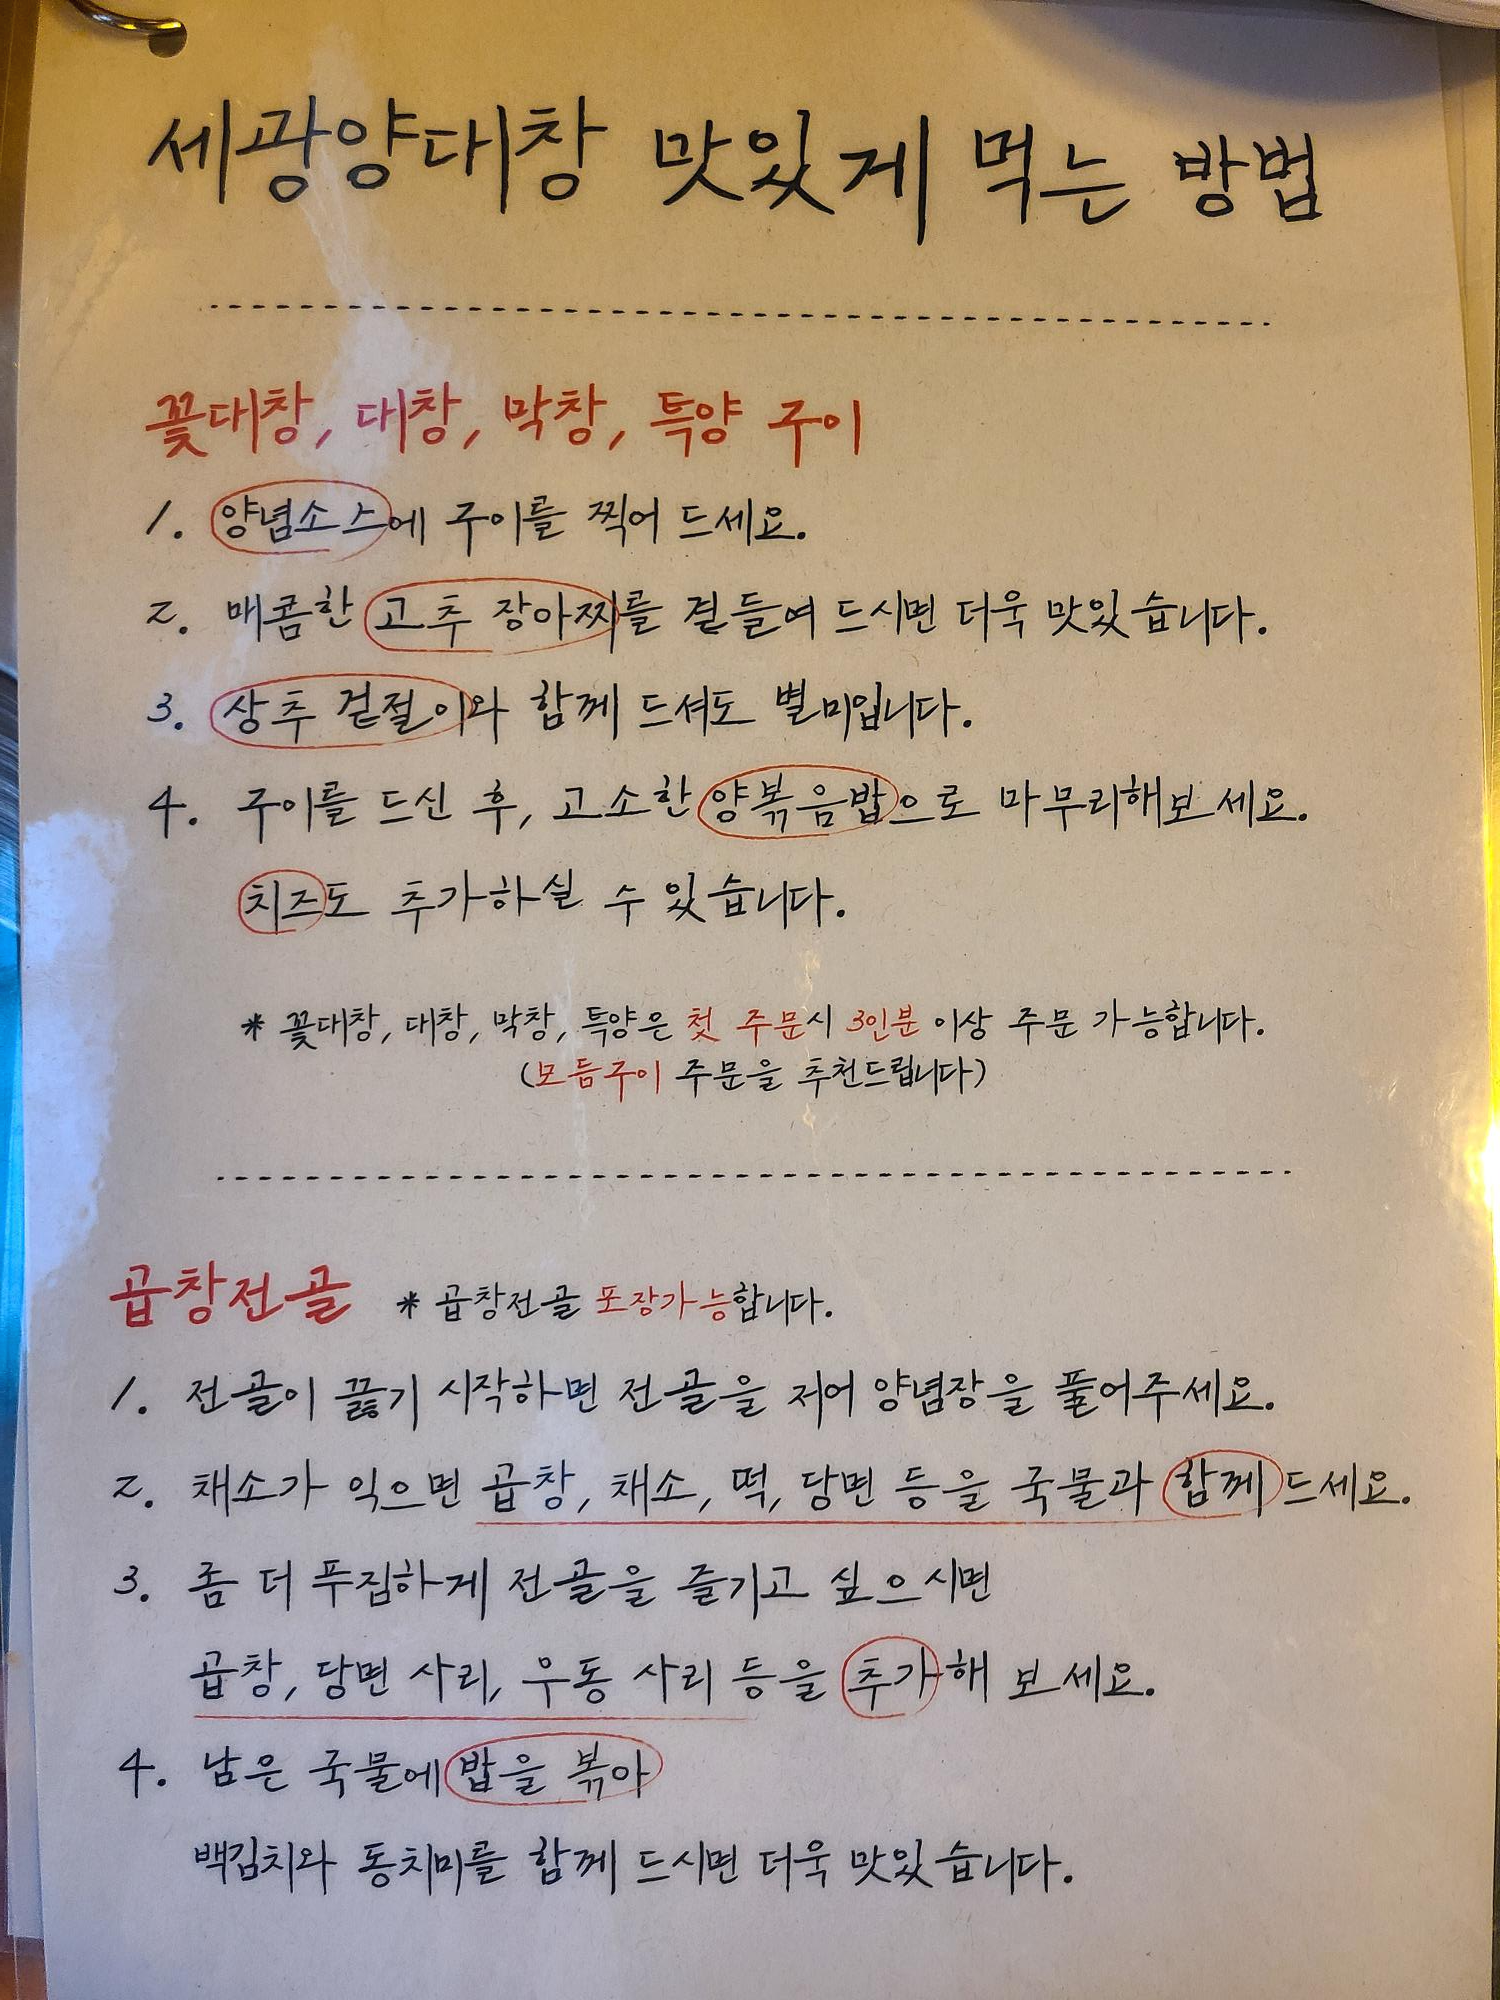 세광양대창 맛있게 먹는 방법
꽃대창, 대창, 막창, 특양 구이
1. 양념소스에 구이를 찍어 드세요.
2. 매콤한 고추 장아찌를 곁들여 드시면 더욱 맛있습니다.
3. 상추 겉절이와 함께 드셔도 별미입니다.
4. 구이를 드신 후, 고소한 양볶음밥으로 마무리해보세요.
치즈도 추가하실 수 있습니다.
* 꽃대창, 대창, 막창, 특양은 첫 주문시 3인분 이상 주문 가능합니다.
(모듬구이 주문을 추천드립니다)
곱창전골 * 곱창전골 포장가능합니다.
1. 전골이 끓기 시작하면 전골을 저어 양념장을 풀어주세요.
2. 채소가 익으면 곱창, 채소, 떡, 당면 등을 국물과 함께 드세요.
3. 좀 더 푸짐하게 전골을 즐기고 싶으시면
곱창, 당면 사리, 우동 사리 등을 추가해 보세요.
4. 남은 국물에 밥을 볶아
백김치와 동치미를 함께 드시면 더욱 맛있습니다.